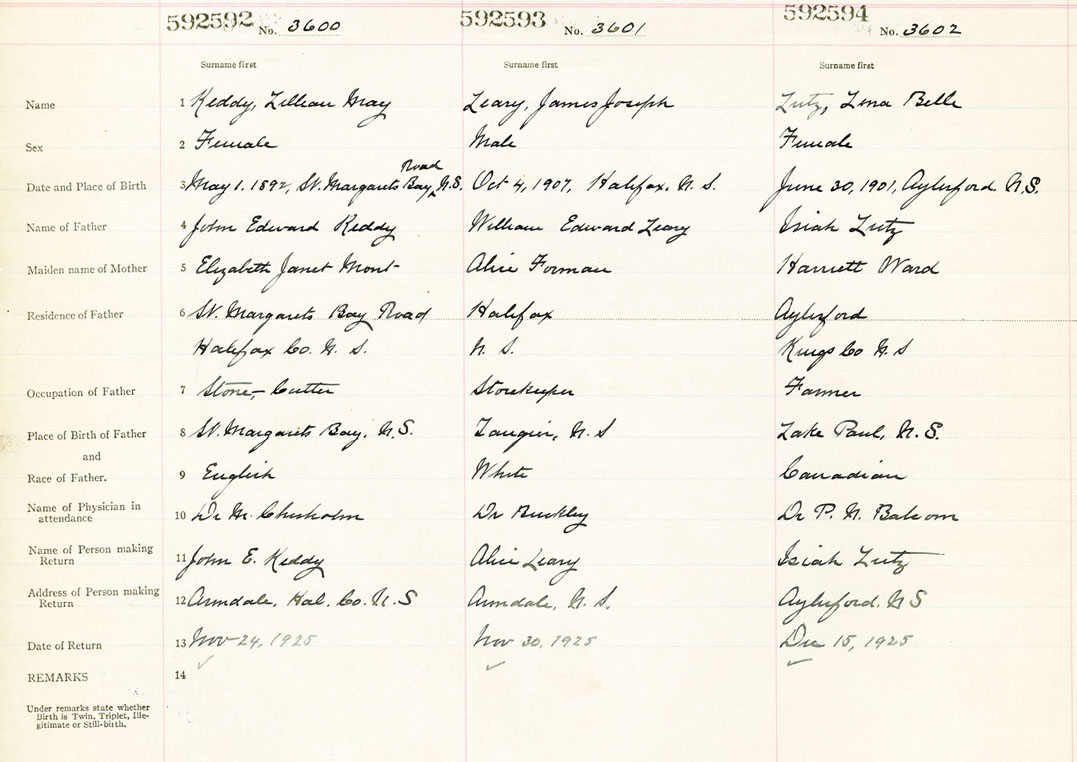 592592 No. 3600 592593 No. 3601 592594 No. 3602
Surname first Surname first Surname first
Name 1 Keddy, Lillian May Leary, James Joseph Lutz, Lena Belle
Sex 2 Female Male Female
Road
Date and Place of Birth 3 May 1. 1892, St. Margarets Bay, N.S. Oct 4, 1907, Halifax, N. S. June 30, 1901, Aylesford N.S.
Name of Father 4 John Edward Keddy William Edward Leary Isiah Lutz
Maiden name of Mother 5 Elizabeth Janet Mont- Alice Forman Harriett Ward
Residence of Father 6 St. Margarets Bay Road Halifax Aylesford
Halifax Co. N. S. N. S. Kings Co N. S
Occupation of Father 7 Stone-Cutter Storekeeper Farmer
Place of Birth of Father 8 St. Margarets Bay, N.S. Tangier, N. S Lake Paul, N. S.
and
Race of Father. 9 English White Canadian
Name of Physician in
attendance 10 Dr M. Chisholm Dr Buckley Dr P. N. Balcom
Name of Person making
Return 11 John E. Keddy Alice Leary Isiah Lutz
Address of Person making
Return 12 Armdale, Hal. Co. N. S Armdale, N. S. Aylesford. N S
Date of Return 13 Nov 24, 1925 Nov 30, 1925 Dec 15, 1925
REMARKS 14
Under remarks state whether
Birth is Twin, Triplet, Ille-
gitimate or Still-birth.